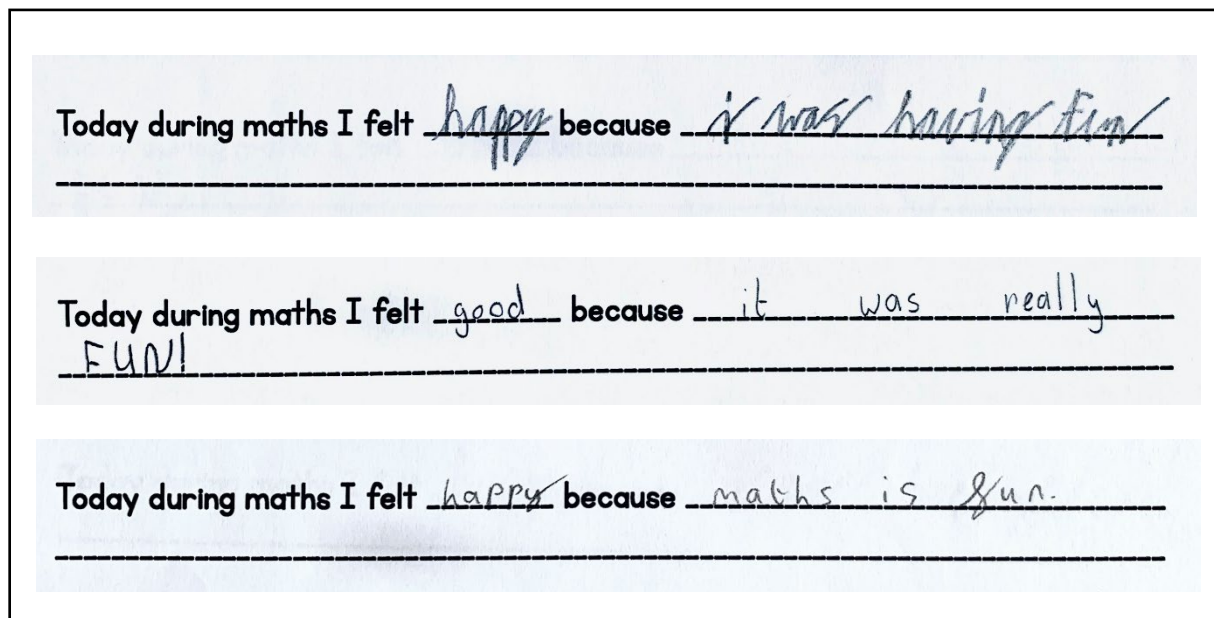 Today during maths I felt happy because i was having fun
Today during maths I felt good because it was really
FUN!
Today during maths I felt happy because maths is fun.